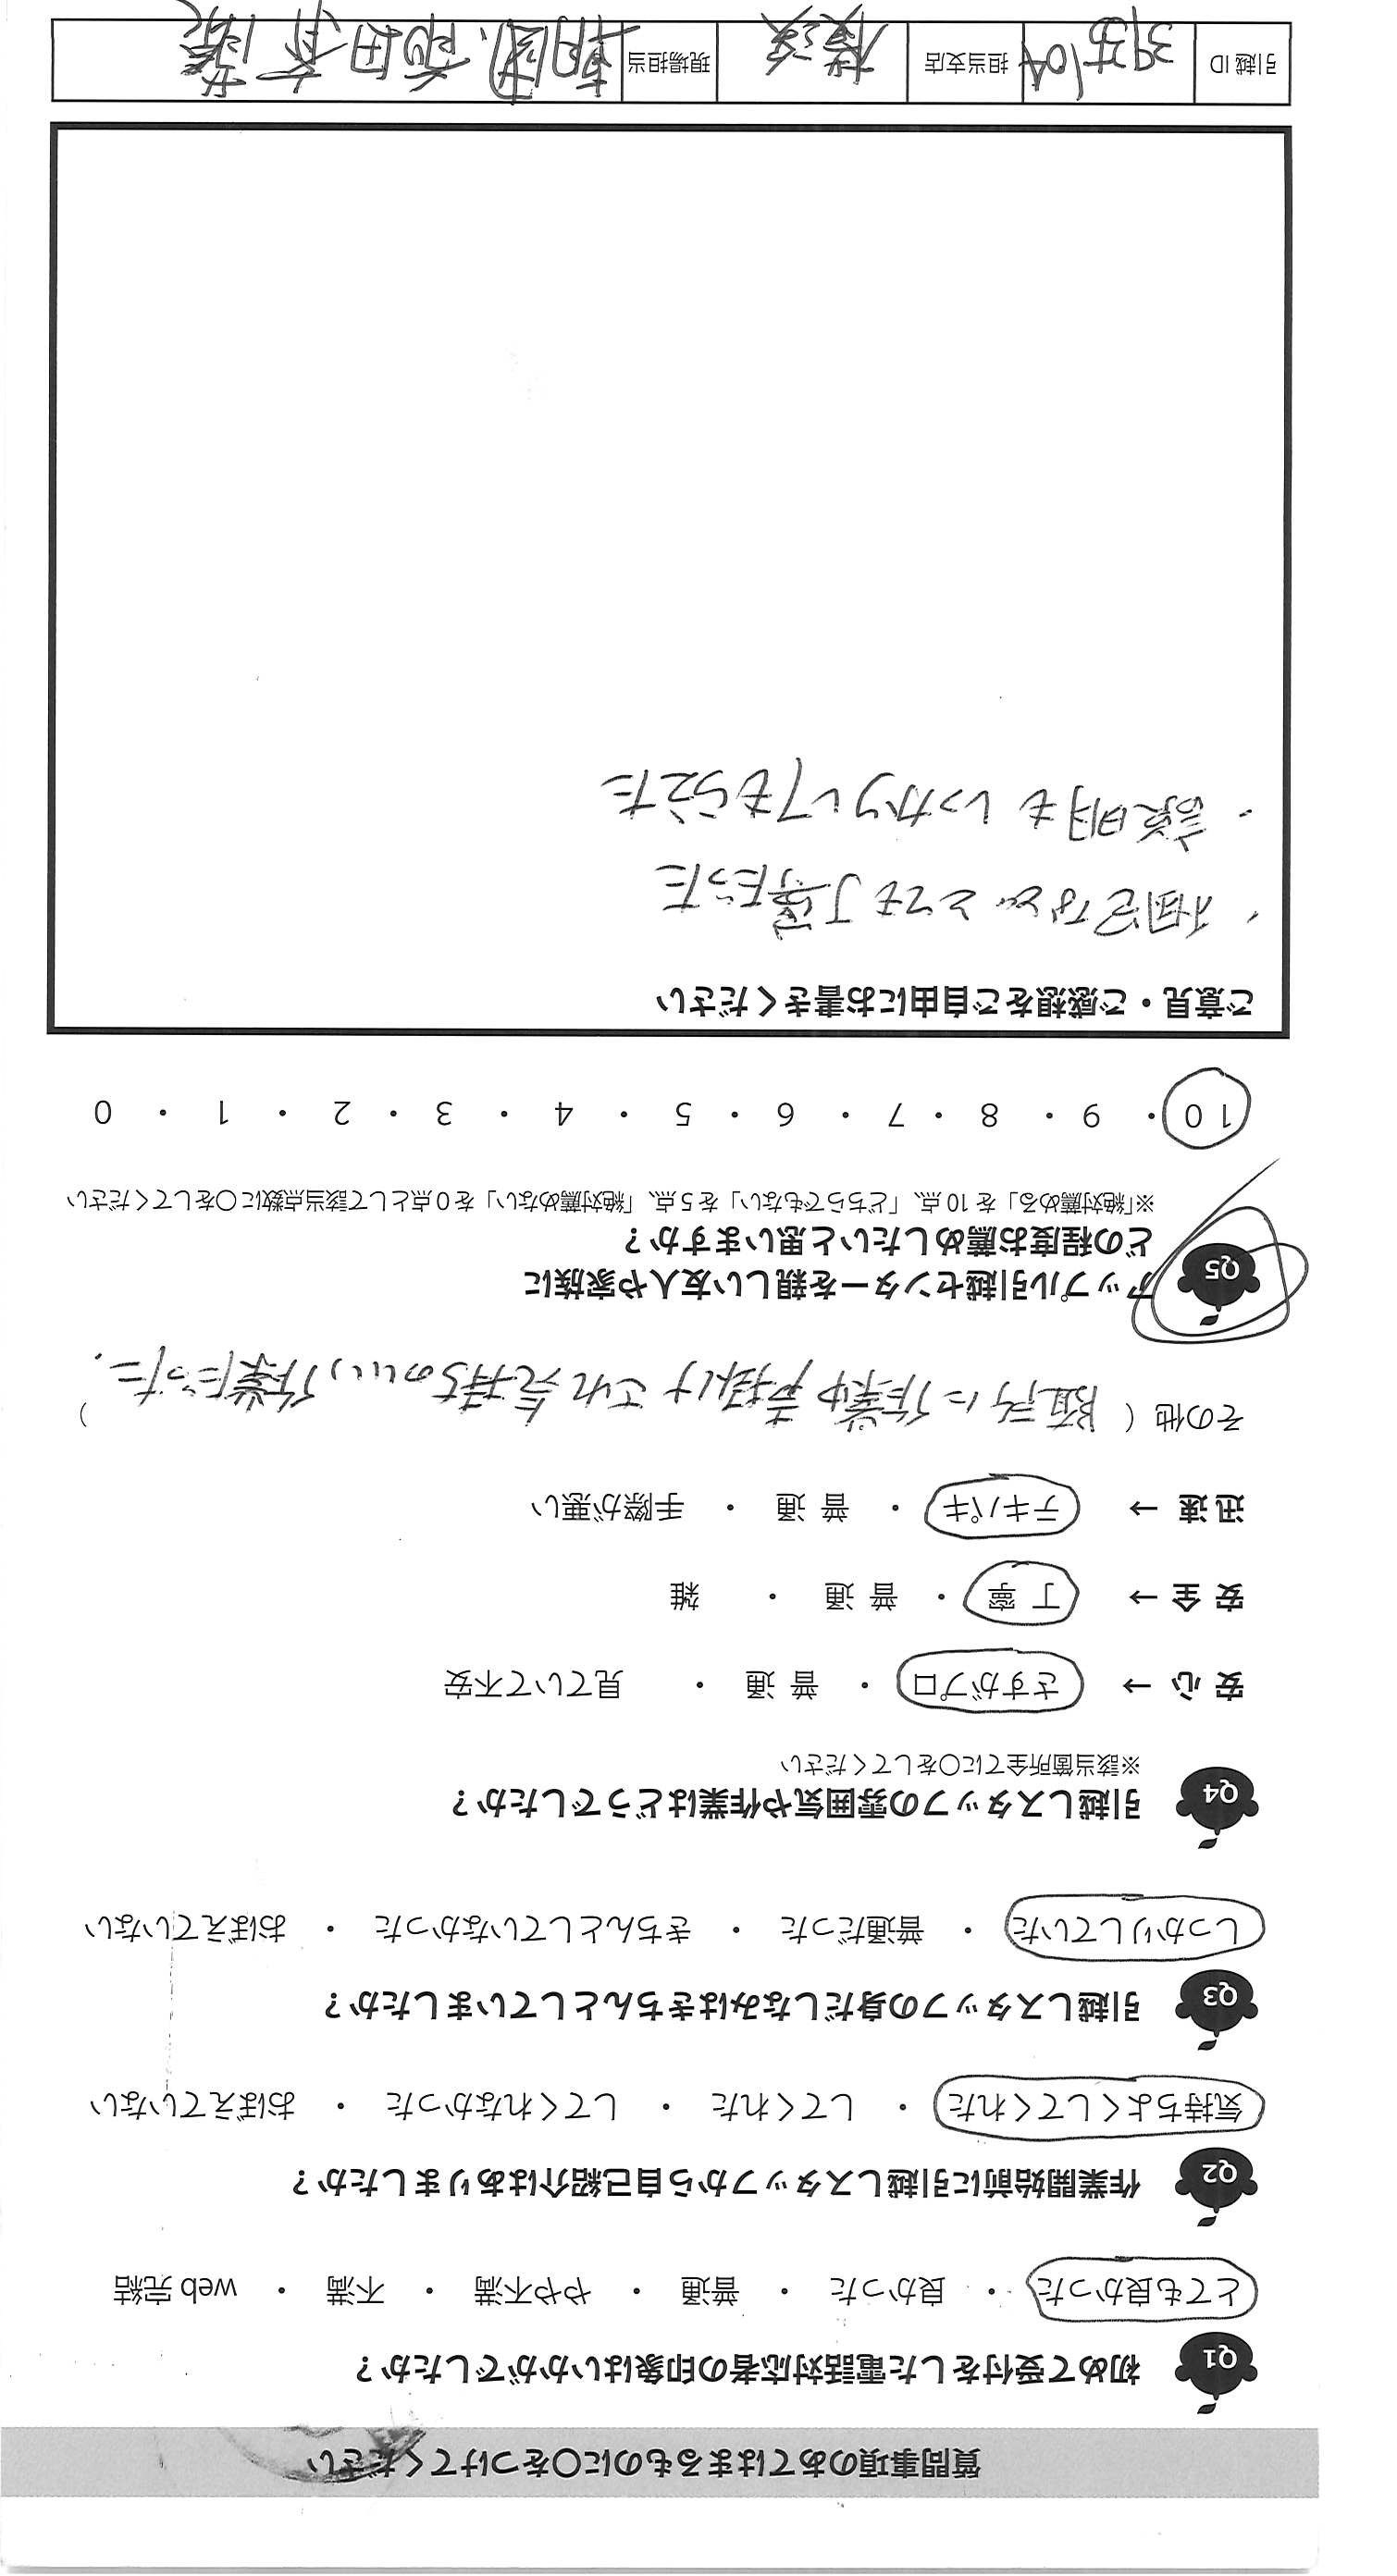 質問事項のあてはまるものに○をつけてください
Q1 初めて受付をした電話対応者の印象はいかがでしたか？
とても良かった ・ 良かった ・ 普通 ・ やや不満 ・ 不満 ・ web 完結
Q2 作業開始前に引越しスタッフから自己紹介はありましたか？
気持ちよくしてくれた ・ してくれた ・ してくれなかった ・ おぼえていない
Q3 引越しスタッフの身だしなみはきちんとしていましたか？
しっかりしていた ・ 普通だった ・ きちんとしていなかった ・ おぼえていない
Q4 引越しスタッフの雰囲気や作業はどうでしたか？
※該当箇所全てに○をしてください
安 心 → さすがプロ ・ 普 通 ・ 見ていて不安
安 全 → 丁 寧 ・ 普 通 ・ 雑
迅 速 → テキパキ ・ 普 通 ・ 手際が悪い
その他 ( 随所に作業中声掛けされ気持ちのいい作業だった. )
Q5 アップル引越センターを親しい友人や家族に
どの程度お薦めしたいと思いますか？
※「絶対薦める」を 10 点、「どちらでもない」を 5 点、「絶対薦めない」を 0 点として該当点数に○をしてください
10 ・ 9 ・ 8 ・ 7 ・ 6 ・ 5 ・ 4 ・ 3 ・ 2 ・ 1 ・ 0
ご意見・ご感想をご自由にお書きください
・梱包などとても丁寧だった
・説明もしっかりしてもらえた
引越 ID 担当支店 横浜 現場担当